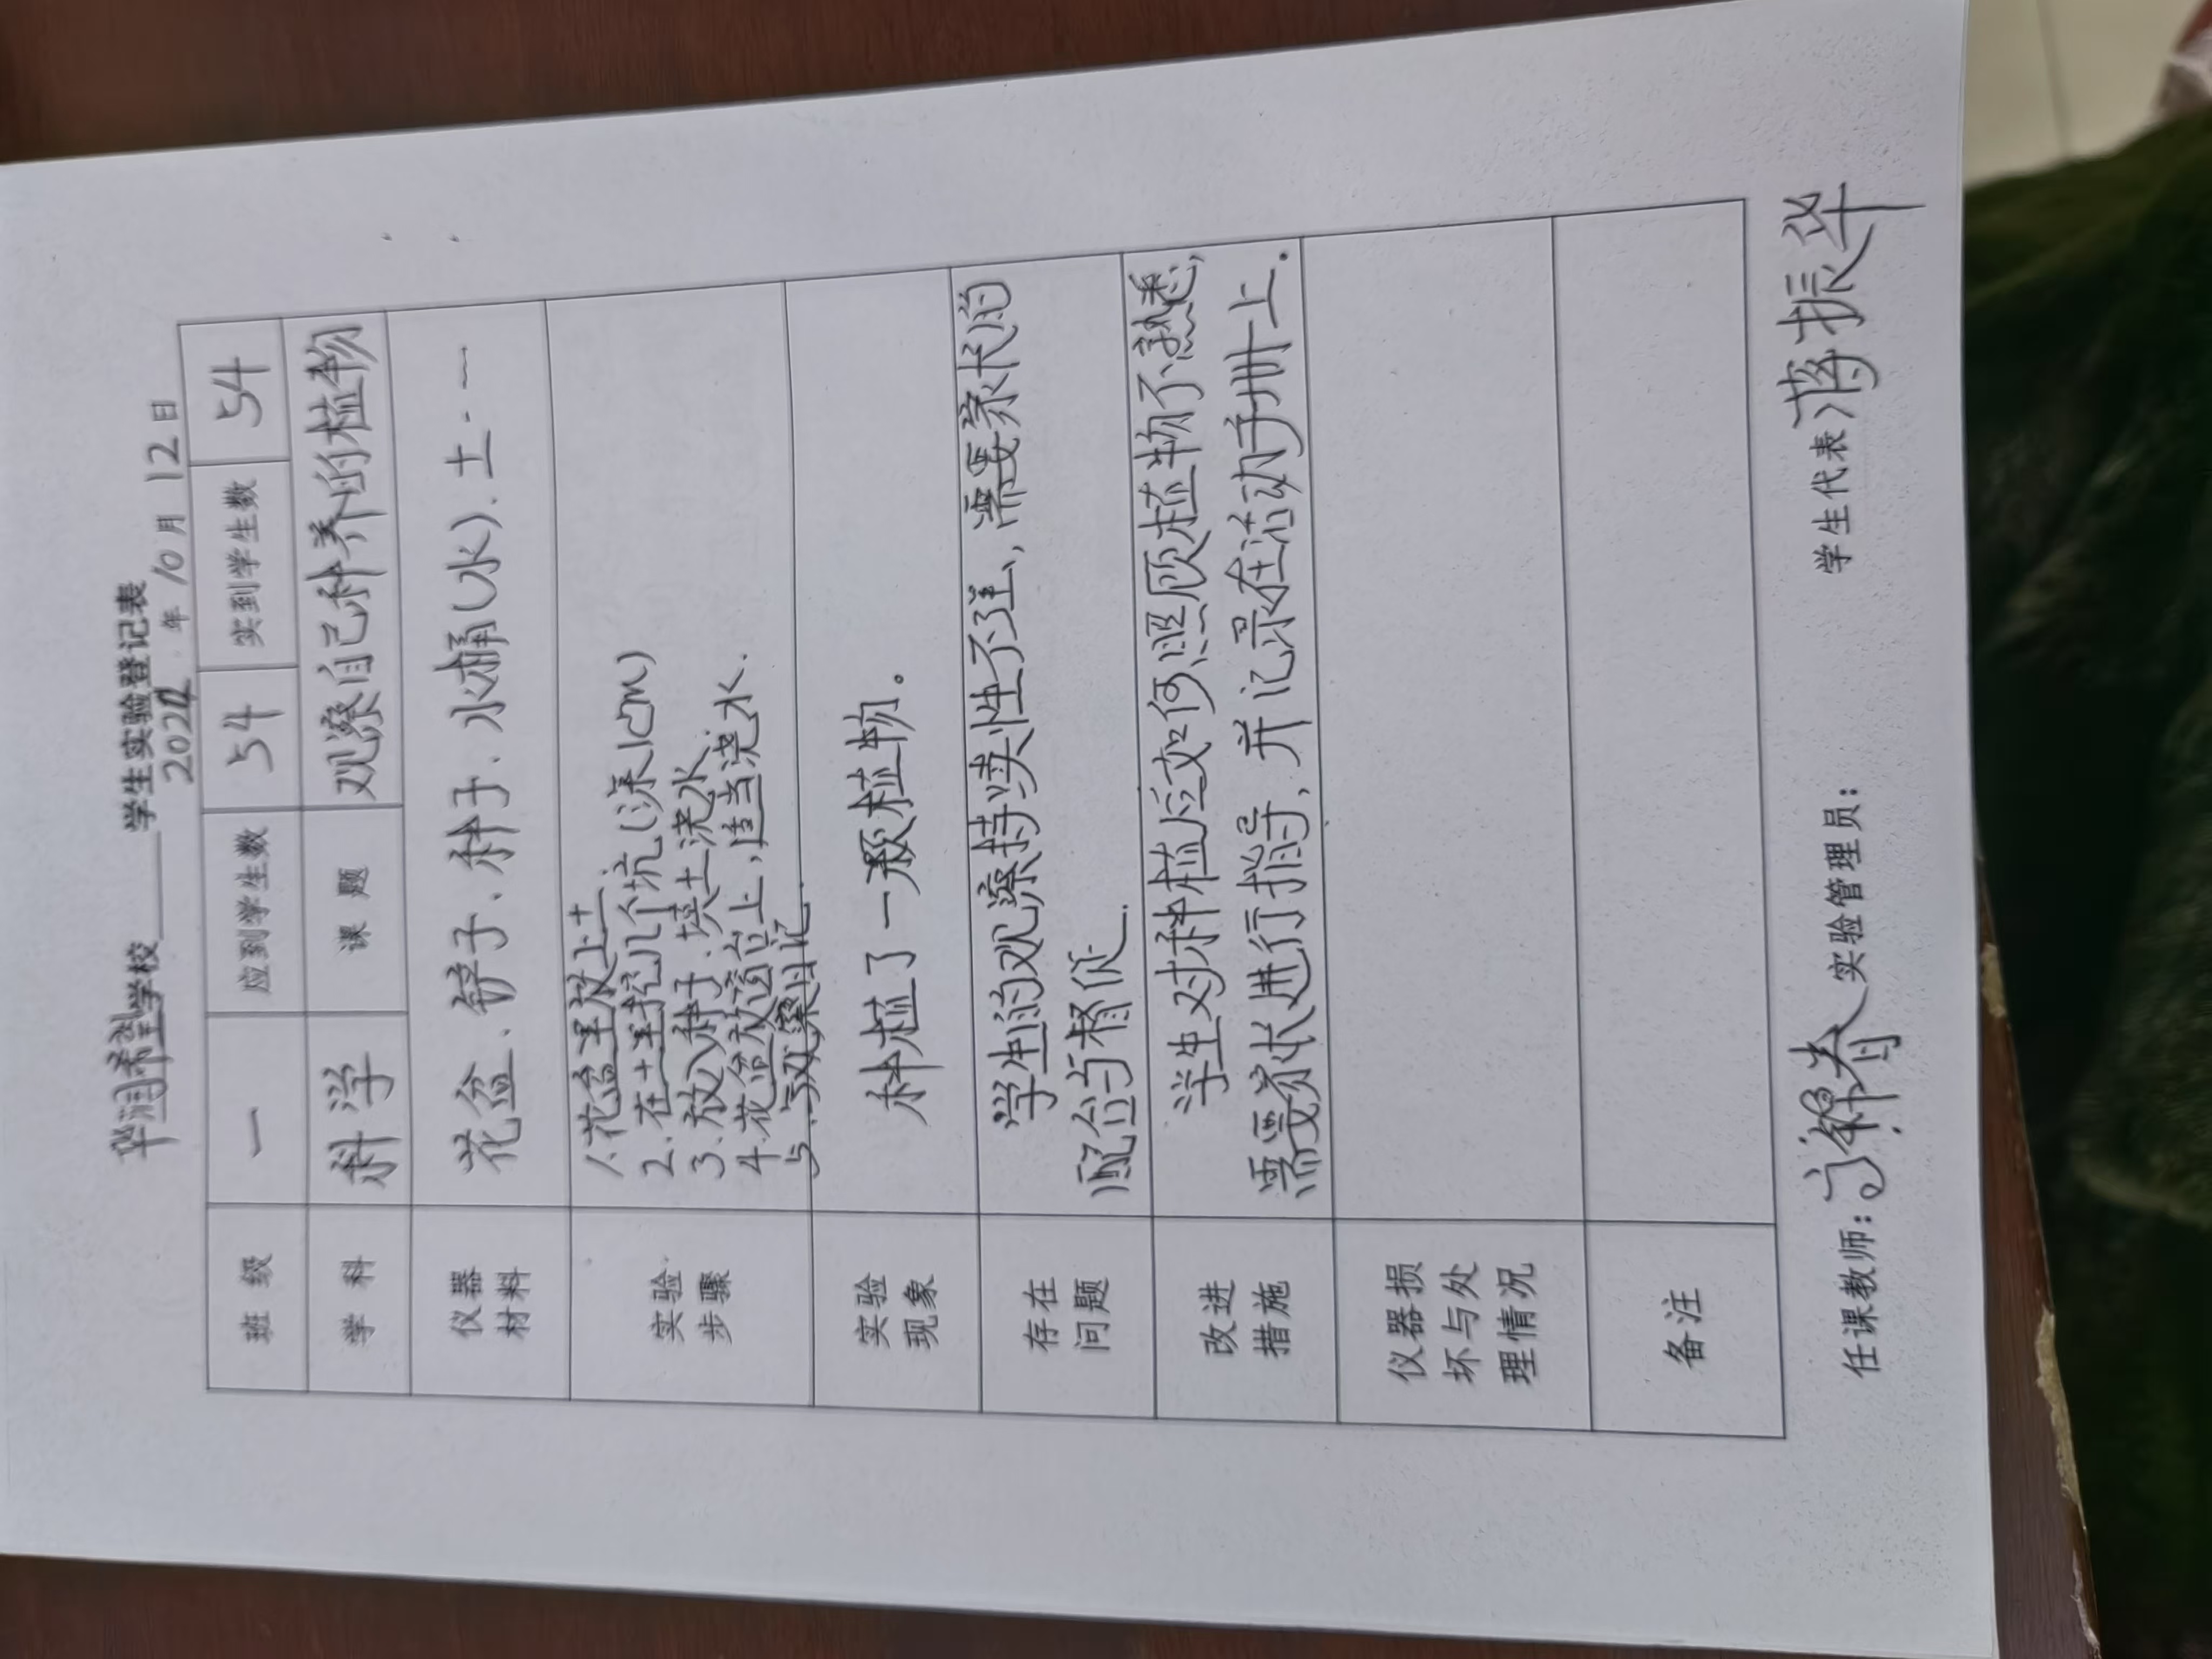 华润希望学校 学生实验登记表
年 10月 12日
班 级 一 应到学生数 54 实到学生数 54
学 科 科学 课 题 观察自己种养的植物
仪器
材料
花盆、铲子、种子、水桶(水)、土……
实验
步骤
1.花盆里放上土.
2.在土里挖几个坑(深1cm)
3.放入种子.填土浇水.
4.花盆放窗台上,适当浇水.
5.写观察日记.
实验
现象
种植了一颗植物。
存在
问题
学生的观察持续性不强,需要家长的
配合与督促.
改进
措施
学生对种植后如何照顾植物不熟悉,
需要家长进行指导,并记录在活动手册上.
仪器损
坏与处
理情况
备注
任课教师: 实验管理员: 学生代表: 蒋振华